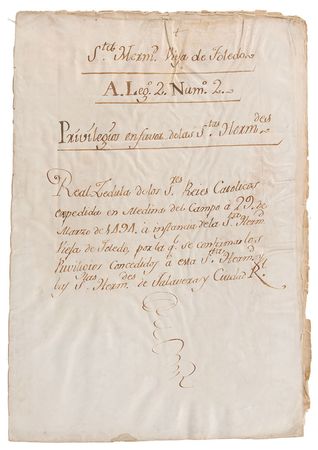 S.ta Herm.d Vieja de Toledo
A. Leg.o 2. Num.o 2.
Privilegios en favor de las S.tas Herm.des
Real Zedula de los S.res Reies Catolicos
expedida en Medina del Campo à 29 de
Marzo de 1494. à instancia de la S.ta Herm.d
Vieja de Toledo, por la q.e se confirman los
Privilegios Concedidos à esta S.ta Herm.d y
las S.tas Herm.des de Talavera y Ciudad R.l